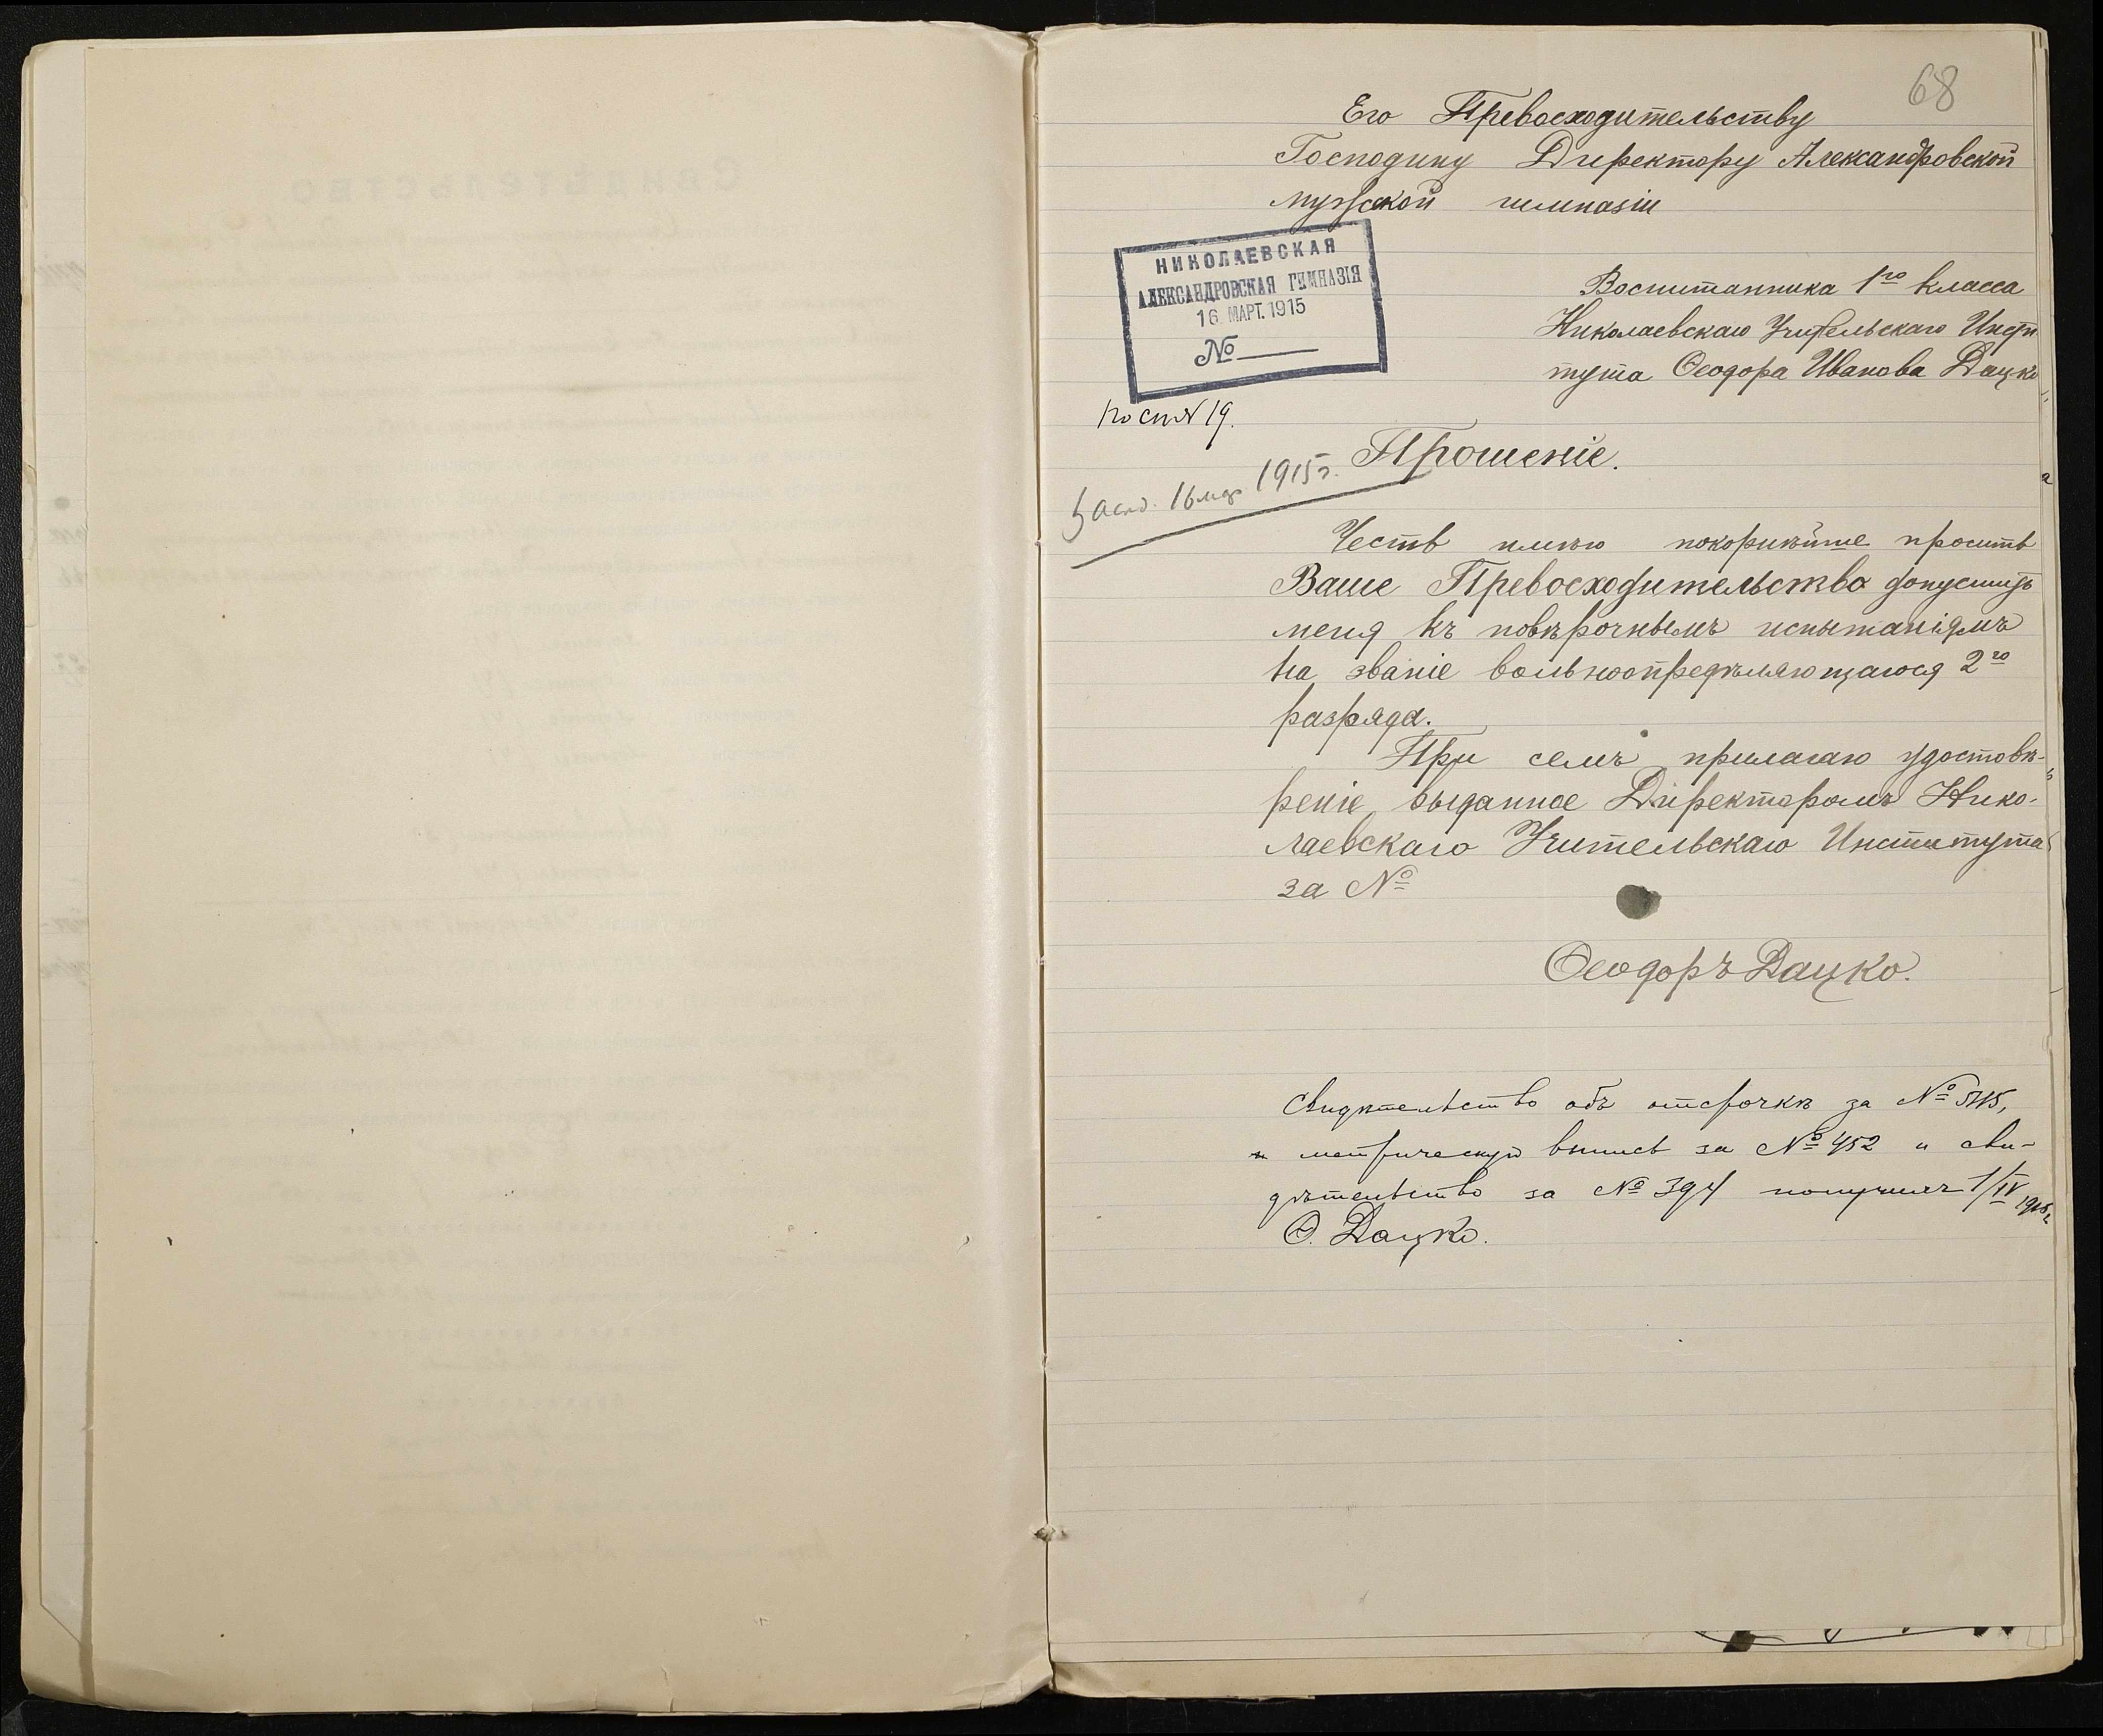 68
Его Превосходительству
Господину Директору Александровской
мужской гимназіи
НИКОЛАЕВСКАЯ
АЛЕКСАНДРОВСКАЯ ГИМНАЗІЯ
16. МАРТ. 1915
№
Воспитанника 1го класса
Николаевскаго Учительскаго Инсти
тута Ѳеодора Иванова Дацко
19.
Прошеніе.
16 мар 1915 г.
Честь имѣю покорнѣйше просить
Ваше Превосходительство допустить
меня къ повѣрочнымъ испытаніямъ
на званіе вольноопредѣляющагося 2го
разряда.
При семъ прилагаю удостовѣ-
реніе выданное Директоромъ Нико-
лаевскаго Учительскаго Института
за №
Ѳеодоръ Дацко.
Свидѣтельство объ отсрочкѣ за №
метрическую выпись за № 452 и сви-
дѣтельство за № 394 получилъ 1/IV 1915 г.
Ѳ. Дацко.